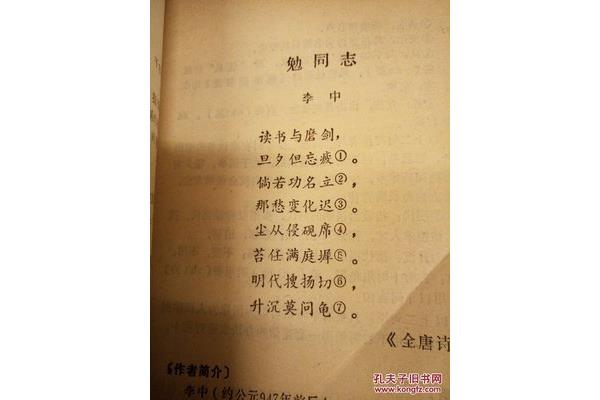 勉同志
李中
读书与磨剑，
旦夕但忘疲①。
倘若功名立②，
那愁变化迟③。
尘从侵砚席④，
苔任满庭墀⑤。
明代搜扬切⑥，
升沉莫问龟⑦。
《全唐诗
〔作者简介〕
李中（约公元947年前后
孔夫子旧书网
www.kongfz.com